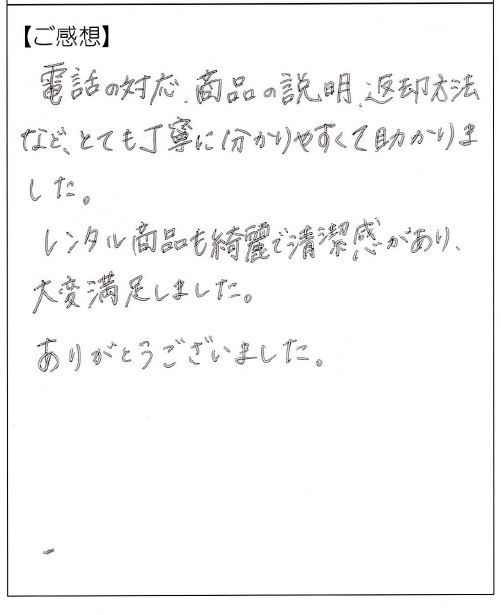 【ご感想】
電話の対応、商品の説明、返却方法
など、とても丁寧に分かりやすくて助かりま
した。
レンタル商品も綺麗で清潔感があり、
大変満足しました。
ありがとうございました。